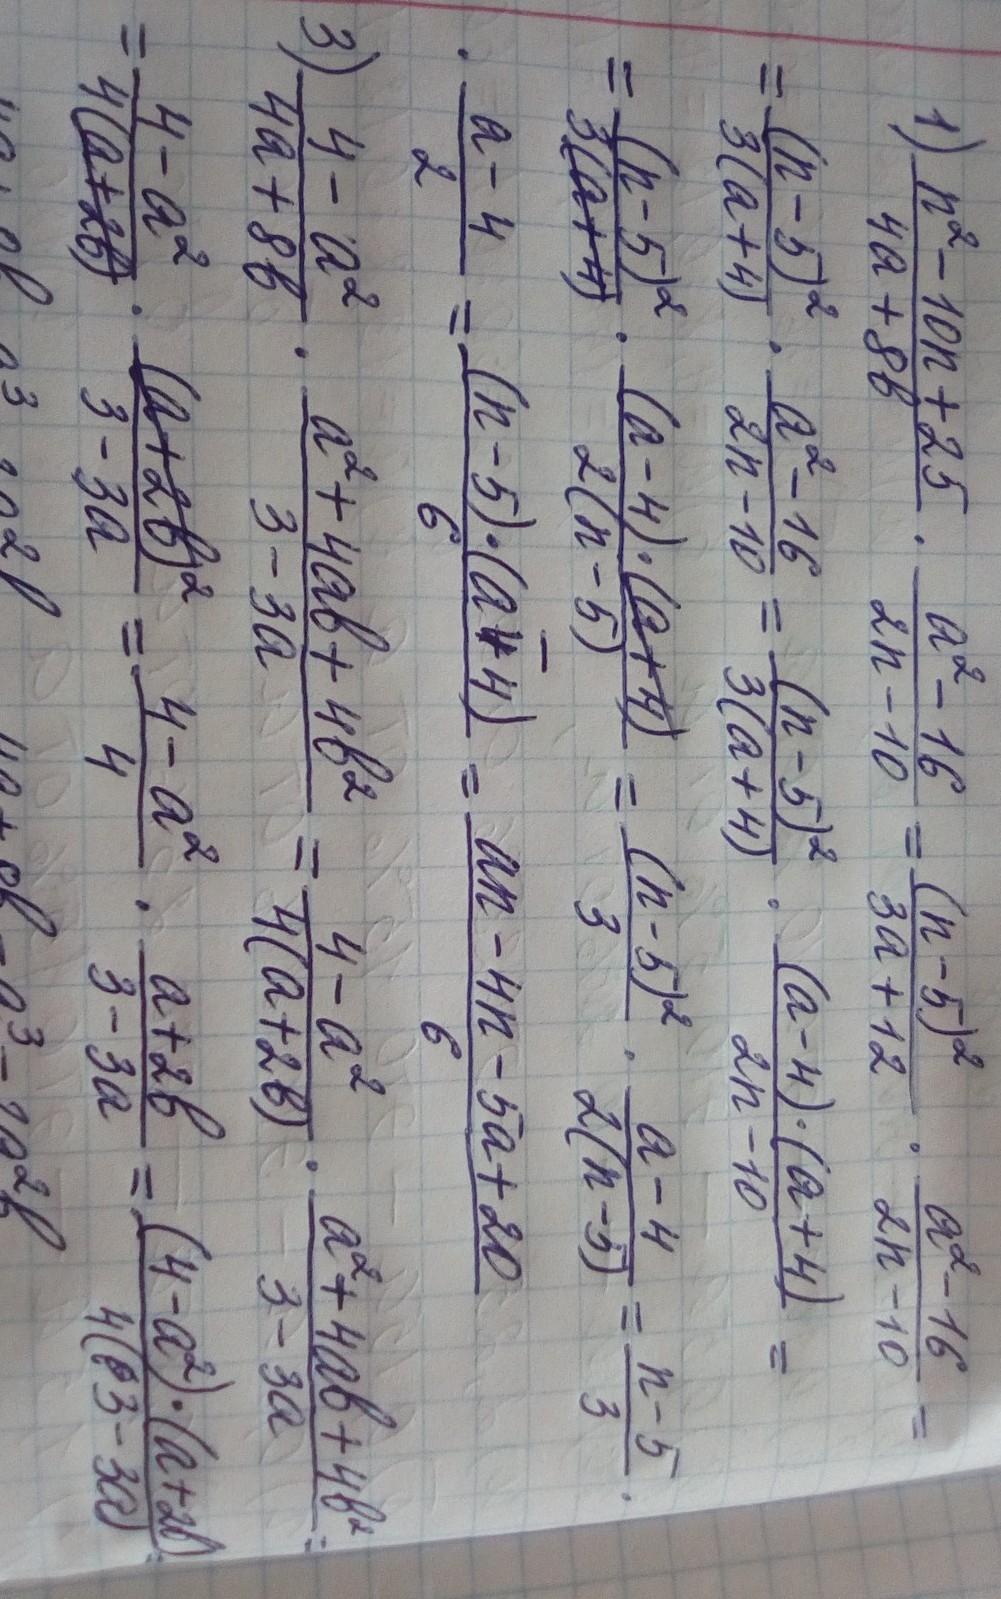 1) (n² - 10n + 25)/(4a + 8b) · (a² - 16)/(2n - 10) = (n - 5)²/(3a + 12) · (a² - 16)/(2n - 10) =
= (n - 5)²/(3(a + 4)) · (a² - 16)/(2n - 10) = (n - 5)²/(3(a + 4)) · ((a - 4)·(a + 4))/(2n - 10) =
= (n - 5)²/(3(a + 4)) · ((a - 4)·(a + 4))/(2(n - 5)) = (n - 5)²/3 · (a - 4)/(2(n - 5)) = (n - 5)/3 ·
· (a - 4)/2 = ((n - 5)·(a - 4))/6 = (an - 4n - 5a + 20)/6
3) (4 - a²)/(4a + 8b) · (a² + 4ab + 4b²)/(3 - 3a) = (4 - a²)/(4(a + 2b)) · (a² + 4ab + 4b²)/(3 - 3a) =
= (4 - a²)/(4(a + 2b)) · (a + 2b)²/(3 - 3a) = (4 - a²)/4 · (a + 2b)/(3 - 3a) = ((4 - a²)·(a + 2b))/(4(3 - 3a)) =